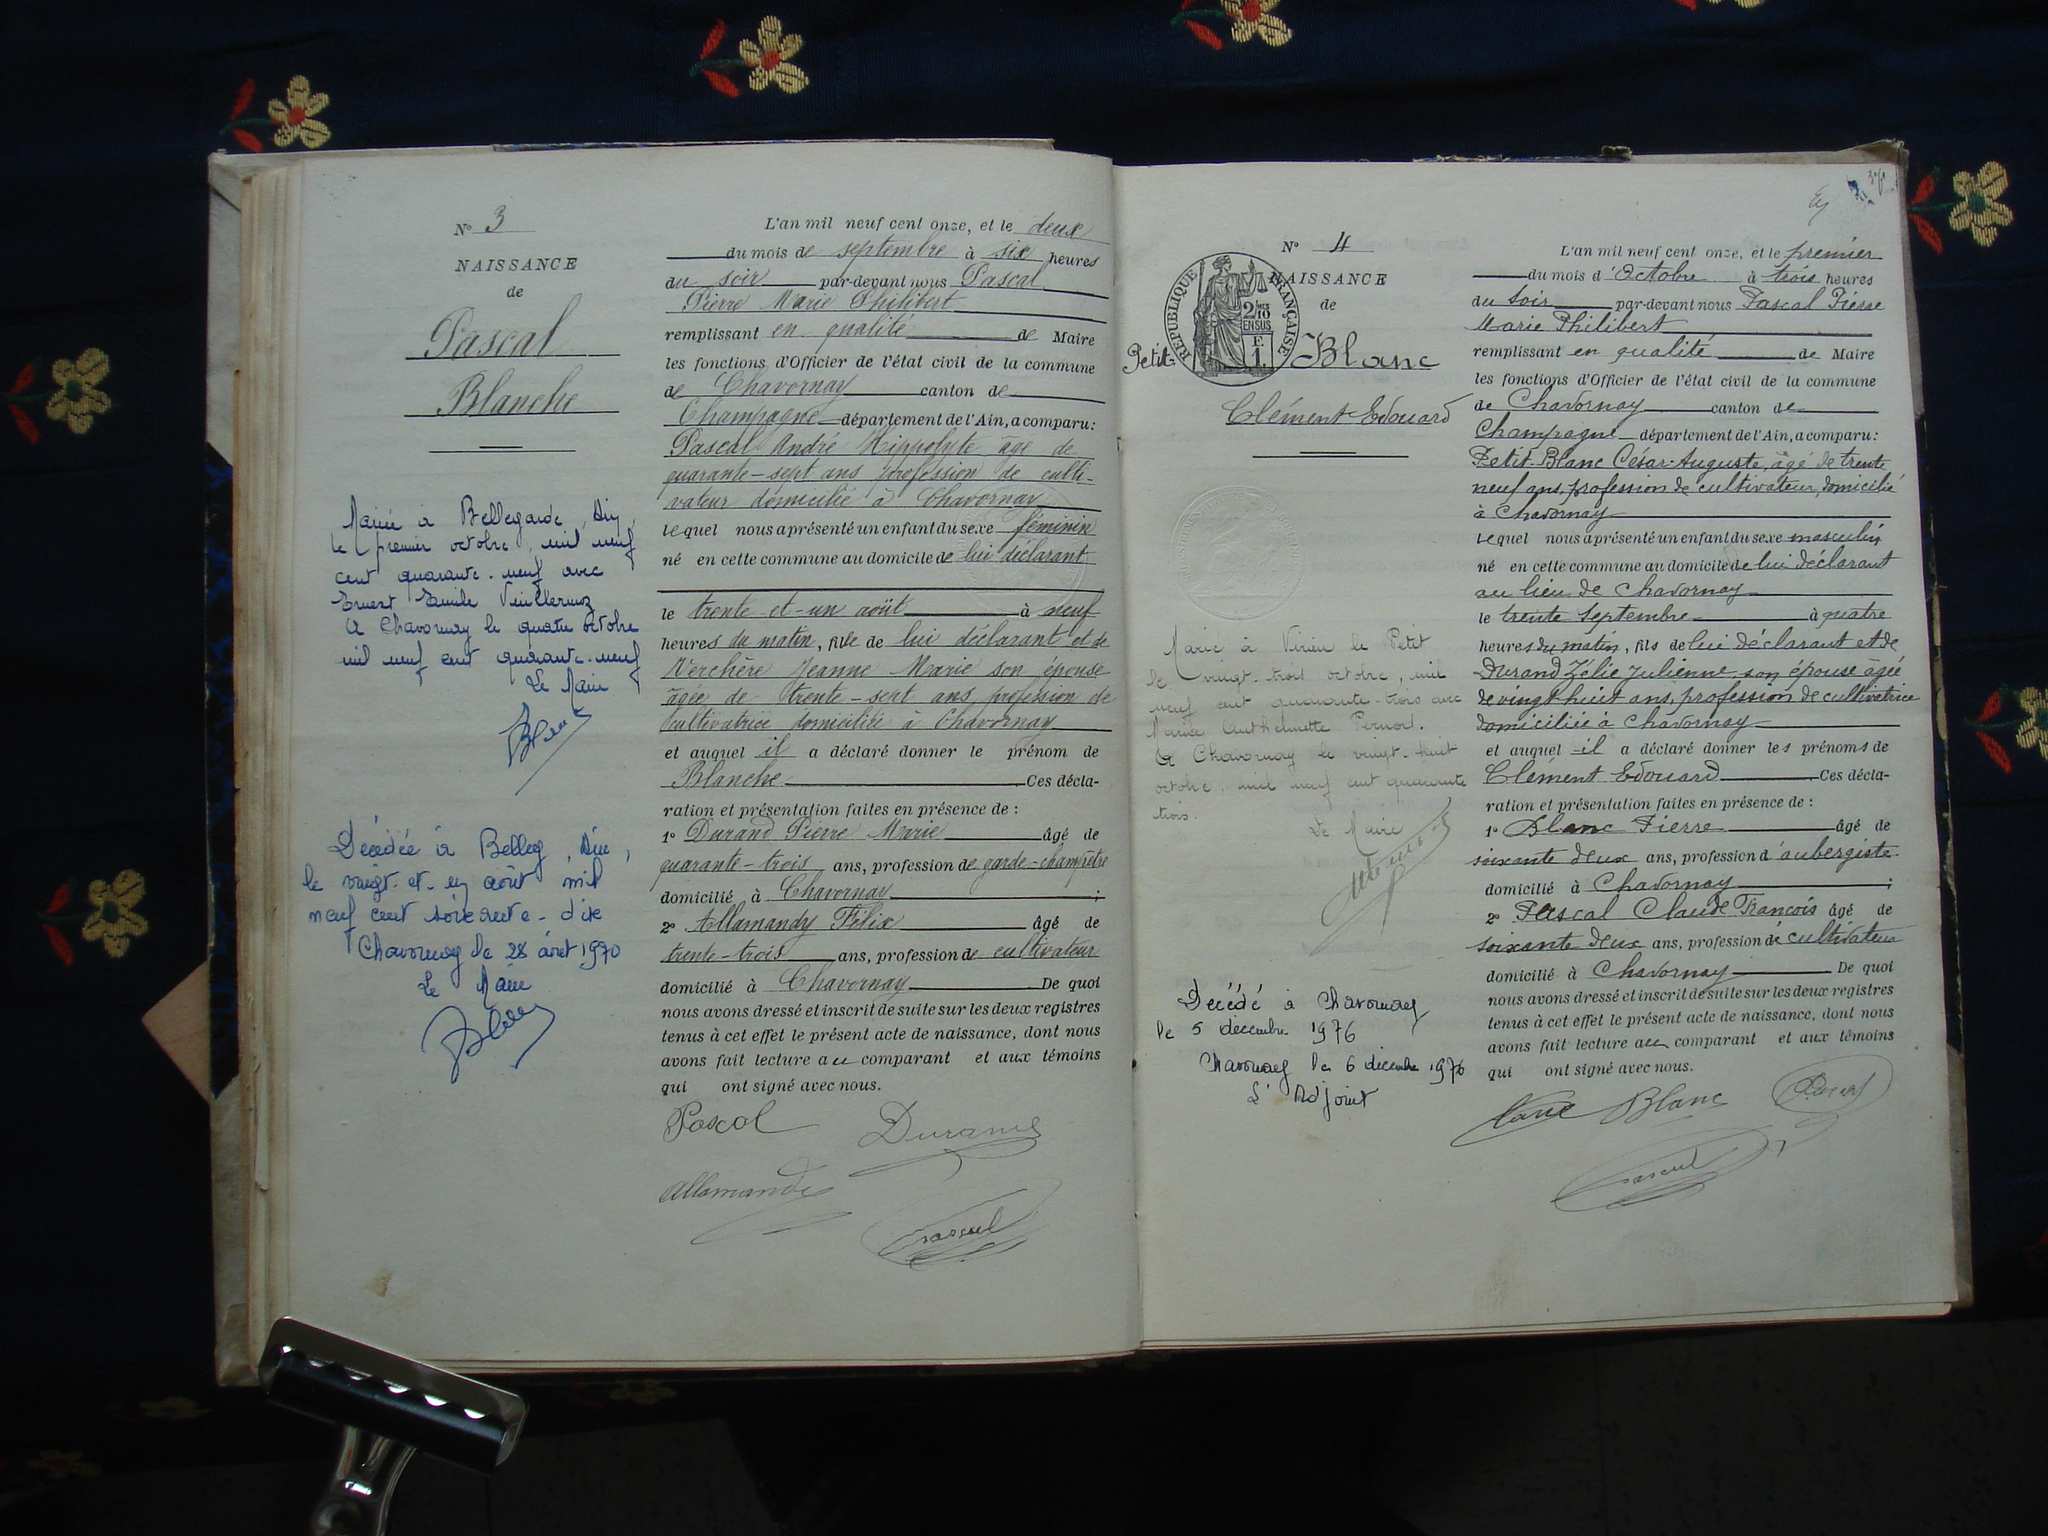 N° 3
NAISSANCE
de
Pascal
Blanche
Mariée à Bellegarde, Ain,
le premier octobre, mil neuf
cent quarante-neuf avec
Ernest Emile Vuillermoz
A Chavornay le quatre octobre
mil neuf cent quarante-neuf
Le Maire
Décédée à Belley, Ain,
le vingt-et-un août mil
neuf cent soixante-dix
Chavornay le 28 août 1970
Le Maire
L'an mil neuf cent onze, et le deux
du mois de septembre à six heures
du soir par-devant nous Pascal
Pierre Marie Philibert
remplissant en qualité de Maire
les fonctions d'Officier de l'état civil de la commune
de Chavornay canton de
Champagne département de l'Ain, a comparu:
Pascal André Hippolyte âgé de
quarante-sept ans profession de culti-
vateur domicilié à Chavornay
lequel nous a présenté un enfant du sexe féminin
né en cette commune au domicile de lui déclarant
le trente-et-un août à neuf
heures du matin, fille de lui déclarant et de
Verchère Jeanne Marie son épouse
âgée de trente-sept ans profession de
cultivatrice domiciliée à Chavornay
et auquel il a déclaré donner le prénom de
Blanche Ces décla-
ration et présentation faites en présence de :
1° Durand Pierre Marie âgé de
quarante-trois ans, profession de garde-champêtre
domicilié à Chavornay ;
2° Allamandy Félix âgé de
trente-trois ans, profession de cultivateur
domicilié à Chavornay De quoi
nous avons dressé et inscrit de suite sur les deux registres
tenus à cet effet le présent acte de naissance, dont nous
avons fait lecture au comparant et aux témoins
qui ont signé avec nous.
Pascal Durand
Allamandy
Pascal
N° 4
NAISSANCE
de
RÉPUBLIQUE FRANÇAISE
2/10
EN SUS
F.
1.
Petit-Blanc
Clément Edouard
Marié à Virieu le Petit
le vingt-trois octobre, mil
neuf cent quarante-trois avec
Marie Anthelmette
A Chavornay le vingt-huit
octobre, mil neuf cent quarante
trois.
Le Maire
Décédé à Chavornay
le 5 décembre 1976
Chavornay le 6 décembre 1976
L'Adjoint
L'an mil neuf cent onze, et le premier
du mois d'Octobre à trois heures
du soir par-devant nous Pascal Pierre
Marie Philibert
remplissant en qualité de Maire
les fonctions d'Officier de l'état civil de la commune
de Chavornay canton de
Champagne département de l'Ain, a comparu:
Petit-Blanc César-Auguste, âgé de trente
neuf ans, profession de cultivateur, domicilié
à Chavornay
lequel nous a présenté un enfant du sexe masculin
né en cette commune au domicile de lui déclarant
au lieu de Chavornay
le trente Septembre à quatre
heures du matin, fils de lui déclarant et de
Durand Zélie Julienne son épouse âgée
de vingt huit ans, profession de cultivatrice
domiciliée à Chavornay
et auquel il a déclaré donner les prénoms de
Clément Edouard Ces décla-
ration et présentation faites en présence de :
1° Blanc Pierre âgé de
soixante deux ans, profession d'aubergiste
domicilié à Chavornay ;
2° Pascal Claude François âgé de
soixante deux ans, profession de cultivateur
domicilié à Chavornay De quoi
nous avons dressé et inscrit de suite sur les deux registres
tenus à cet effet le présent acte de naissance, dont nous
avons fait lecture au comparant et aux témoins
qui ont signé avec nous.
Blanc Pascal
Pascal